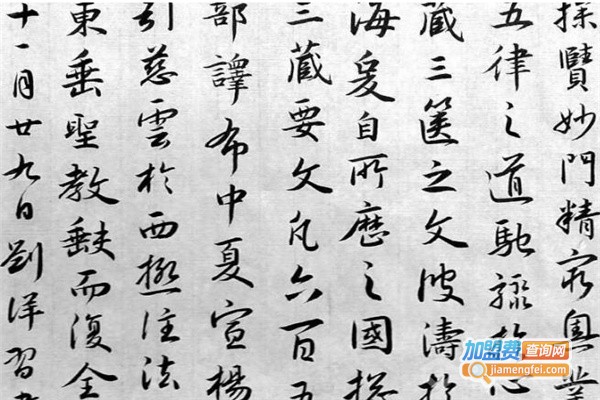 探賾妙門精窮奧業
五律之道馳驟於心
藏三篋之文波濤於
海爰自所歷之國總
三藏要文凡六百五
部譯布中夏宣揚
引慈雲於西極注法
東垂聖教缺而復全
十一月廿九日劉洋習
加盟费查询网
jiamengfei.com